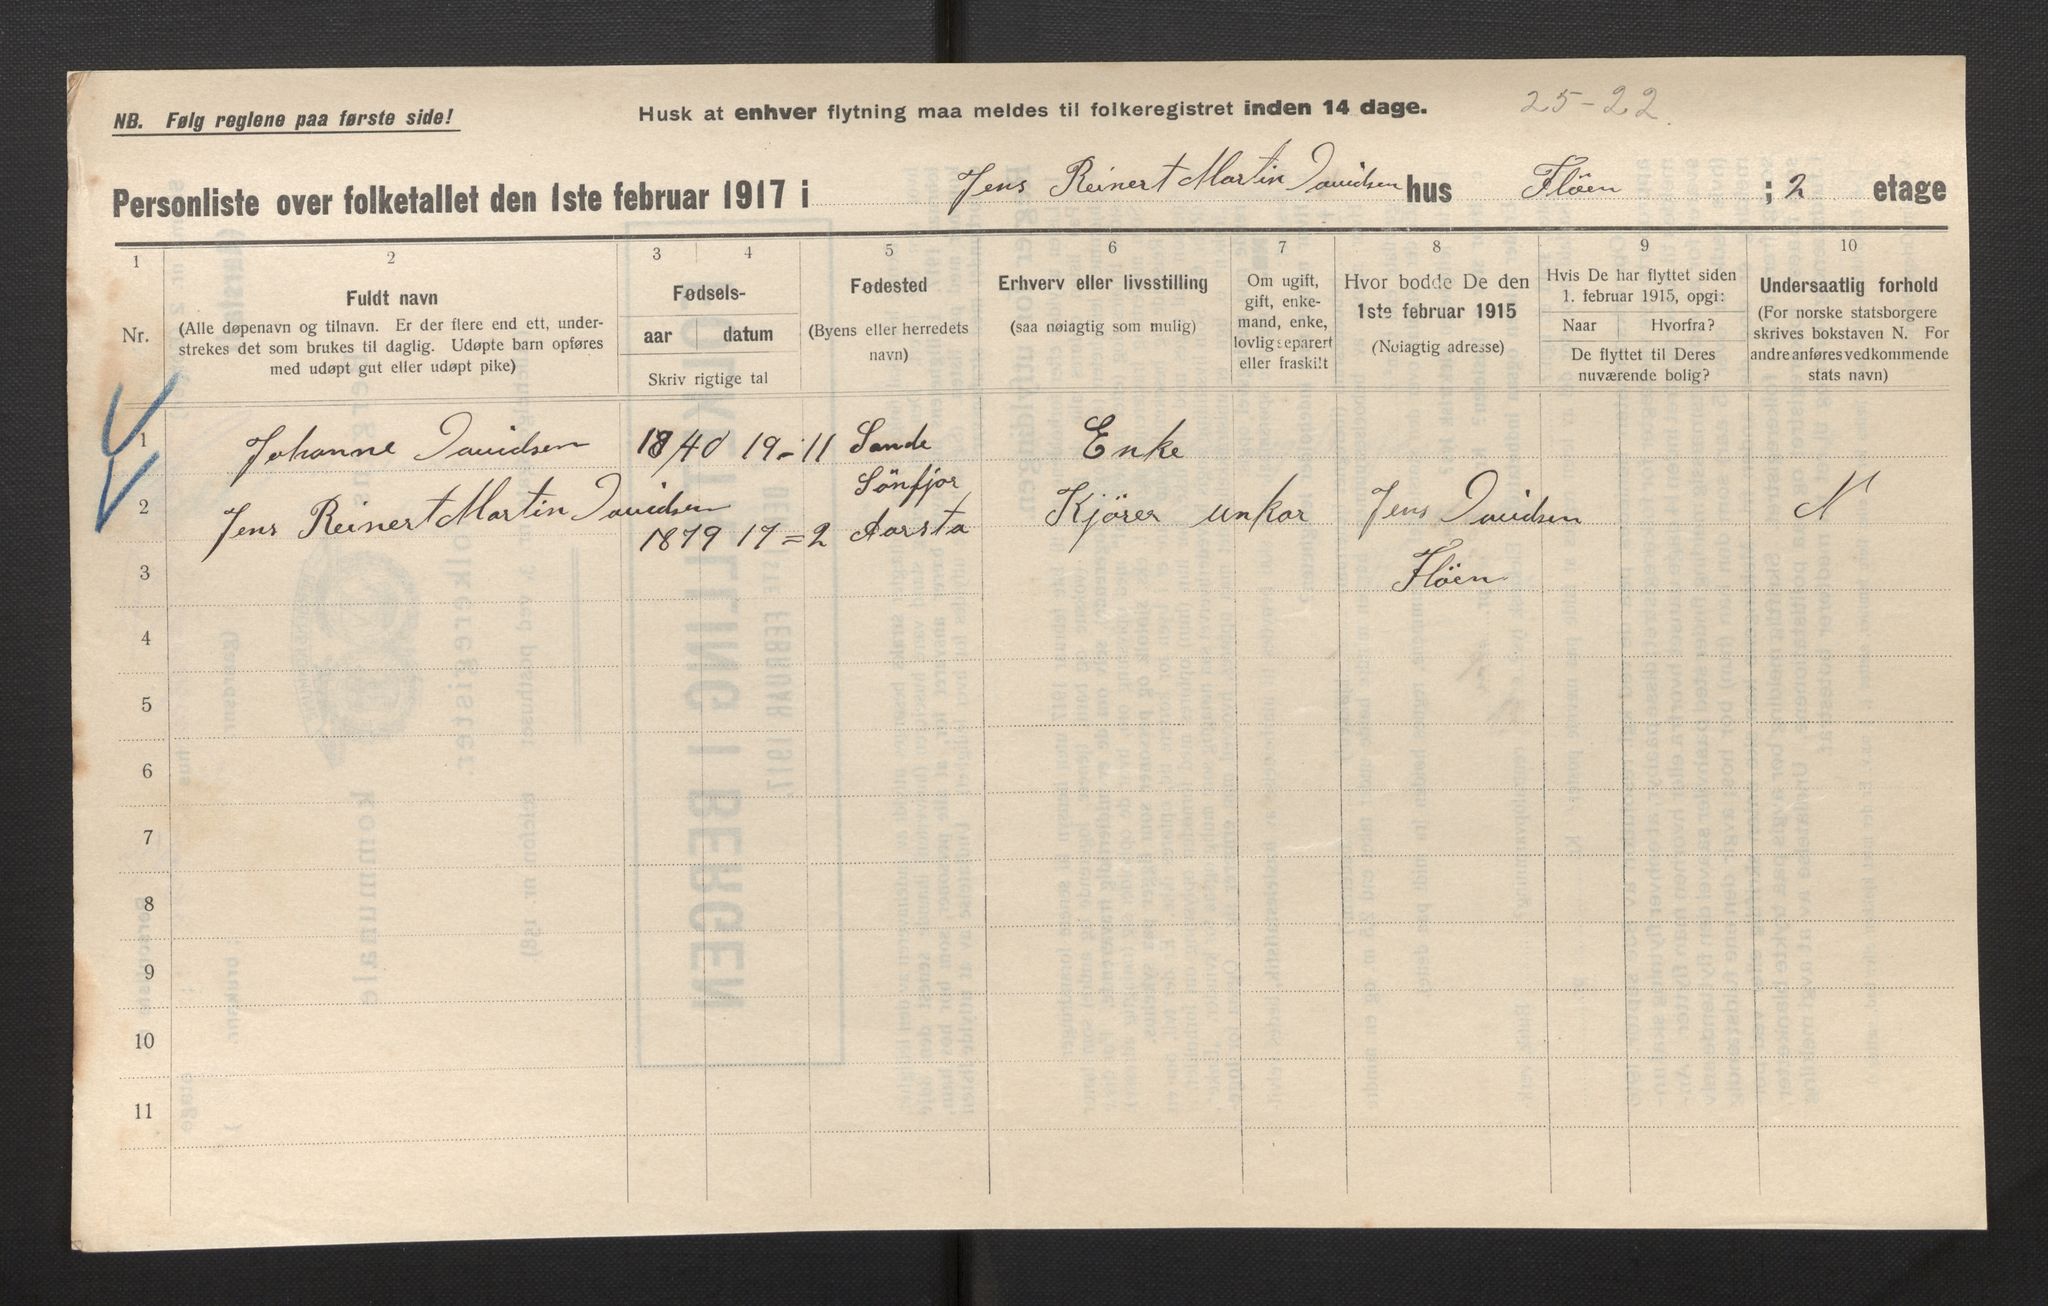 NB. Følg reglene paa første side!
Husk at enhver flytning maa meldes til folkeregistret inden 14 dage.
25-22.
Personliste over folketallet den 1ste februar 1917 i Jens Reinert Martin Davidsen hus Flöen ; 2 etage
1 2 3 4 5 6 7 8 9 10
Nr.
Fuldt navn
(Alle døpenavn og tilnavn. Er der flere end ett, under-
strekes det som brukes til daglig. Udøpte barn opføres
med udøpt gut eller udøpt pike)
Fødsels-
aar datum
Skriv rigtige tal
Fødested
(Byens eller herredets
navn)
Erhverv eller livsstilling
(saa nøiagtig som mulig)
Om ugift,
gift, enke-
mand, enke,
lovlig separert
eller fraskilt
Hvor bodde De den
1ste februar 1915
(Nøiagtig adresse)
Hvis De har flyttet siden
1. februar 1915, opgi:
Naar Hvorfra?
De flyttet til Deres
nuværende bolig?
Undersaatlig forhold
(For norske statsborgere
skrives bokstaven N. For
andre anføres vedkommende
stats navn)
1 Johanne Davidsen 1840 19-11 Sande Enke
Sönfjor
2 Jens Reinert Martin Davidsen 1879 17=2 Aarsta Kjörer unkar Jens Davidsen N
3 Flöen
4
5
6
7
8
9
10
11